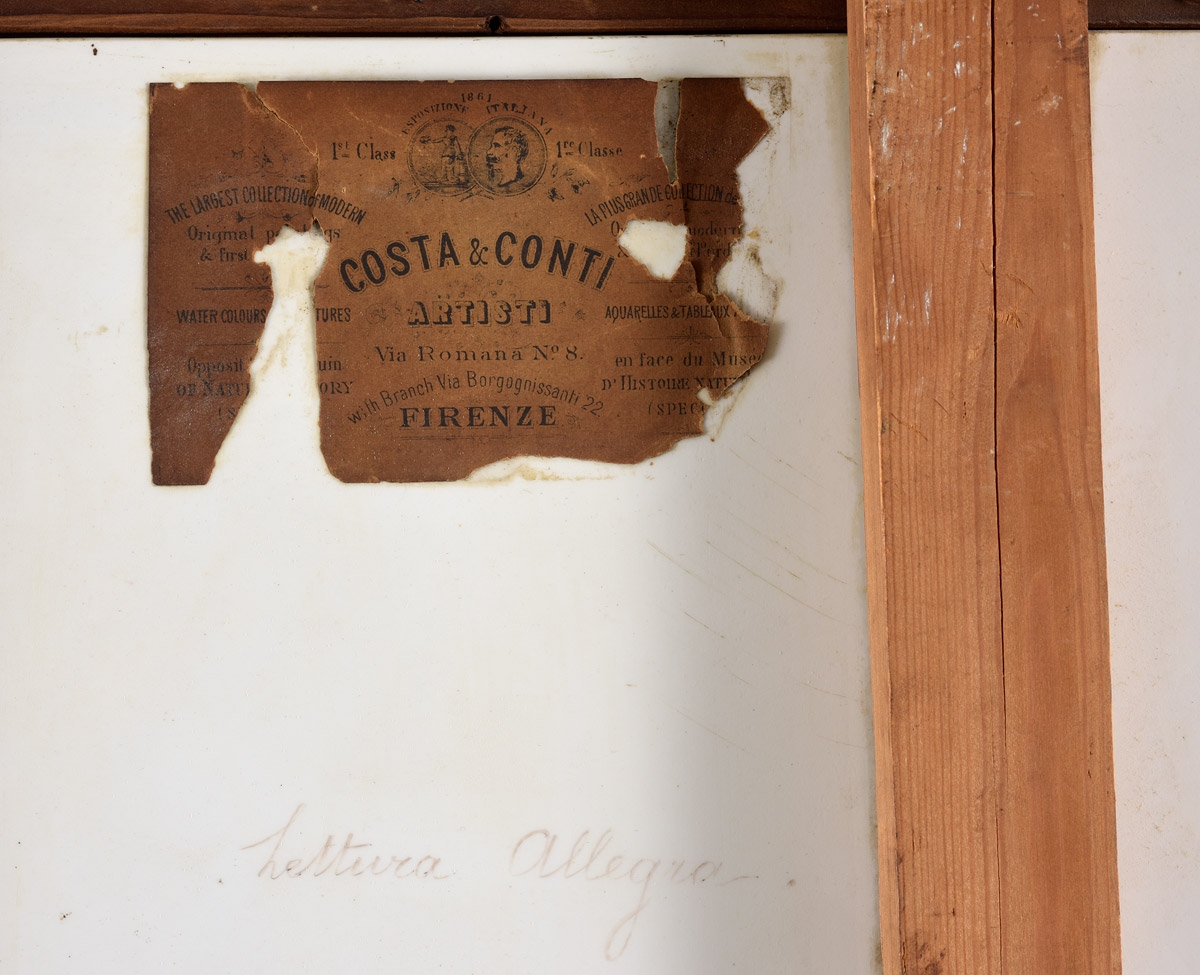 1861
ESPOSIZIONE ITALIANA
1st Class
1re Classe
THE LARGEST COLLECTION of MODERN
Original
& first
WATER COLOURS
OF
COSTA & CONTI
ARTISTI
Via Romana No 8.
with Branch Via Borgognissanti 22.
FIRENZE
LA PLUS GRANDE COLLECTION de
AQUARELLES & TABLEAUX
en face du
D'HISTOIRE
Lettura Allegra.